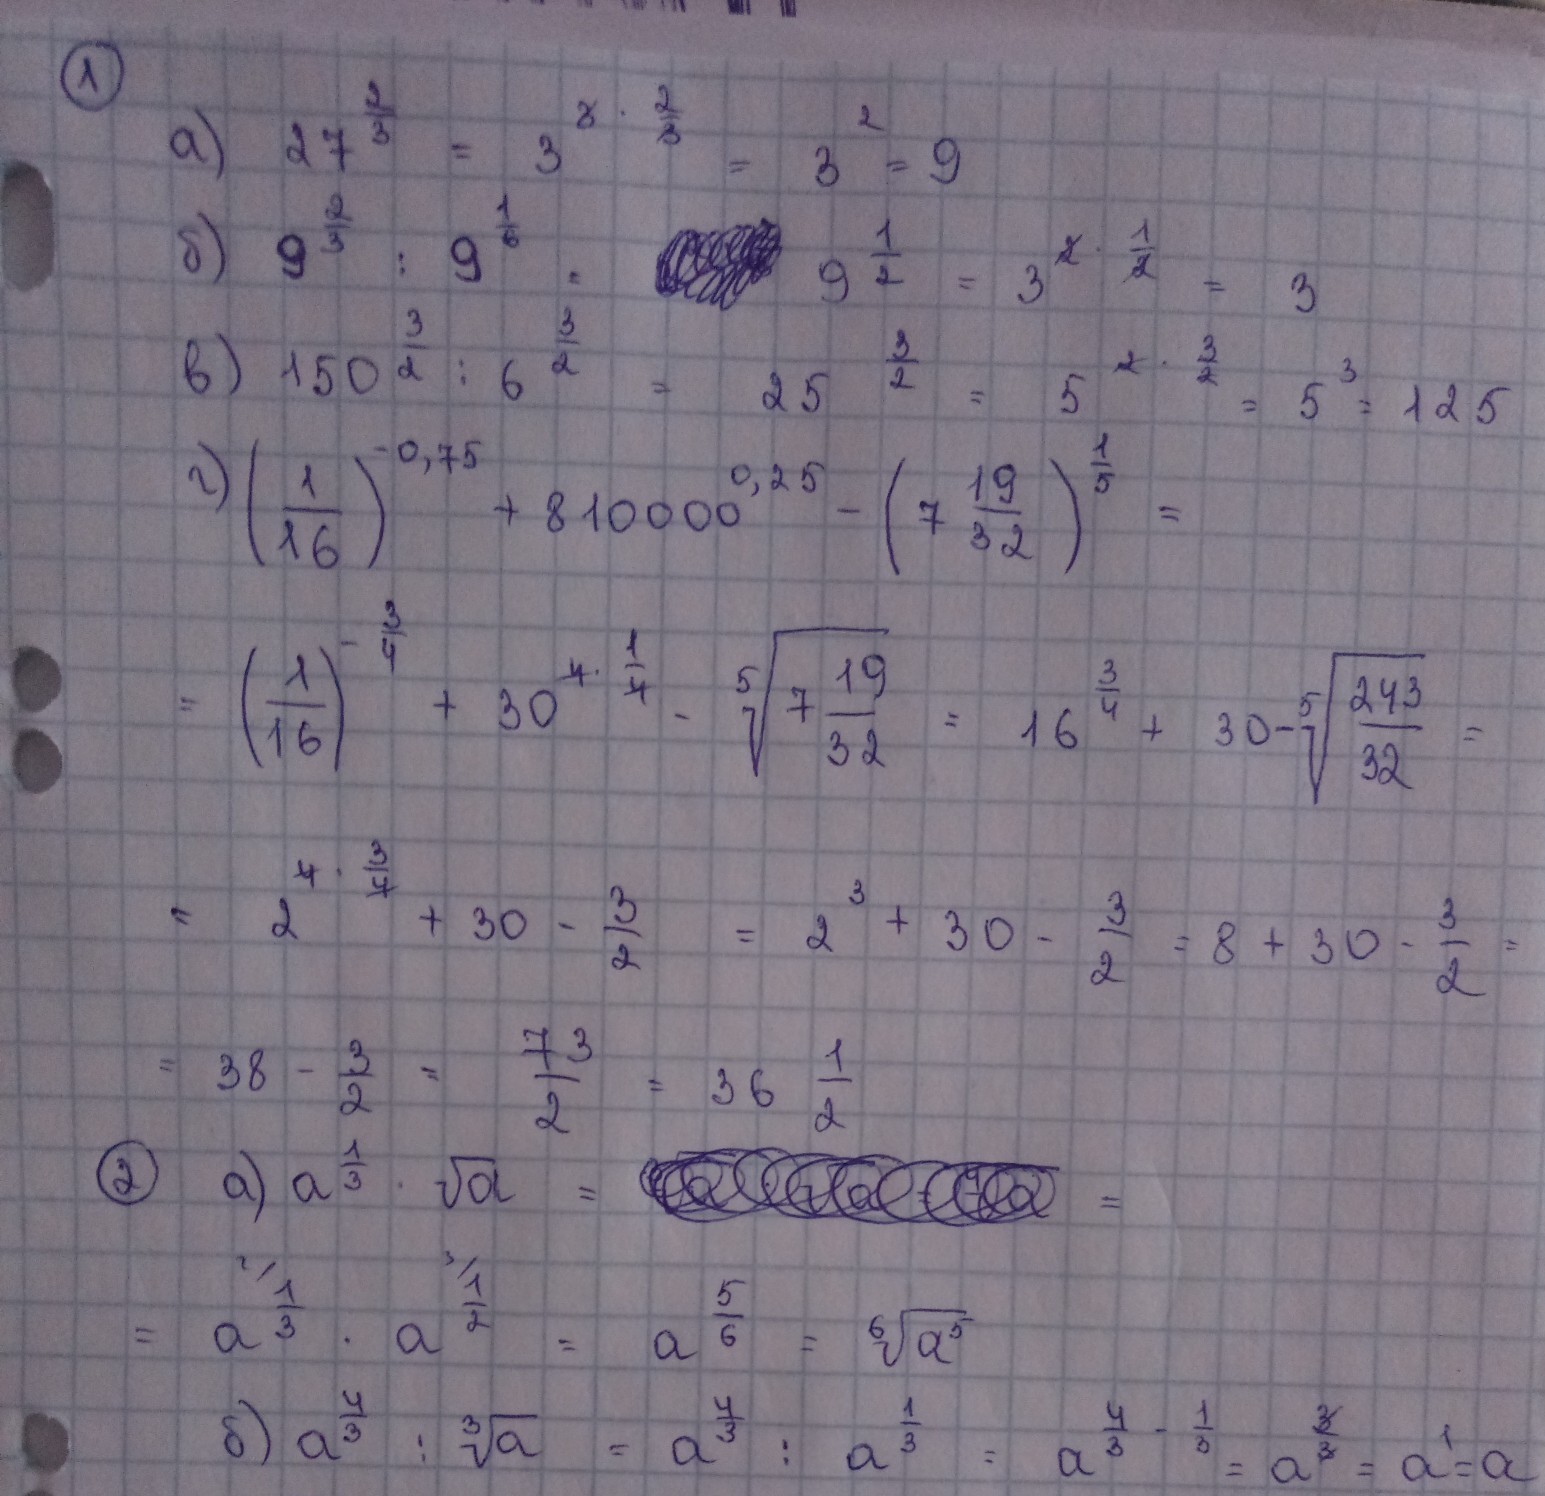 1
а) 27^(2/3) = 3^(3 · 2/3) = 3^2 = 9
б) 9^(2/3) : 9^(1/6) = 9^(1/2) = 3^(2 · 1/2) = 3
в) 150^(3/2) : 6^(3/2) = 25^(3/2) = 5^(2 · 3/2) = 5^3 = 125
г) (1/16)^(-0,75) + 810000^(0,25) - (7 19/32)^(1/5) =
= (1/16)^(-3/4) + 30^(4 · 1/4) - ⁵√(7 19/32) = 16^(3/4) + 30 - ⁵√(243/32) =
= 2^(4 · 3/4) + 30 - 3/2 = 2^3 + 30 - 3/2 = 8 + 30 - 3/2 =
= 38 - 3/2 = 73/2 = 36 1/2
2 а) a^(1/3) · √a = =
= a^(2/ 1/3) · a^(3/ 1/2) = a^(5/6) = ⁶√(a^5)
б) a^(4/3) : ³√a = a^(4/3) : a^(1/3) = a^(4/3 - 1/3) = a^(3/3) = a^1 = a